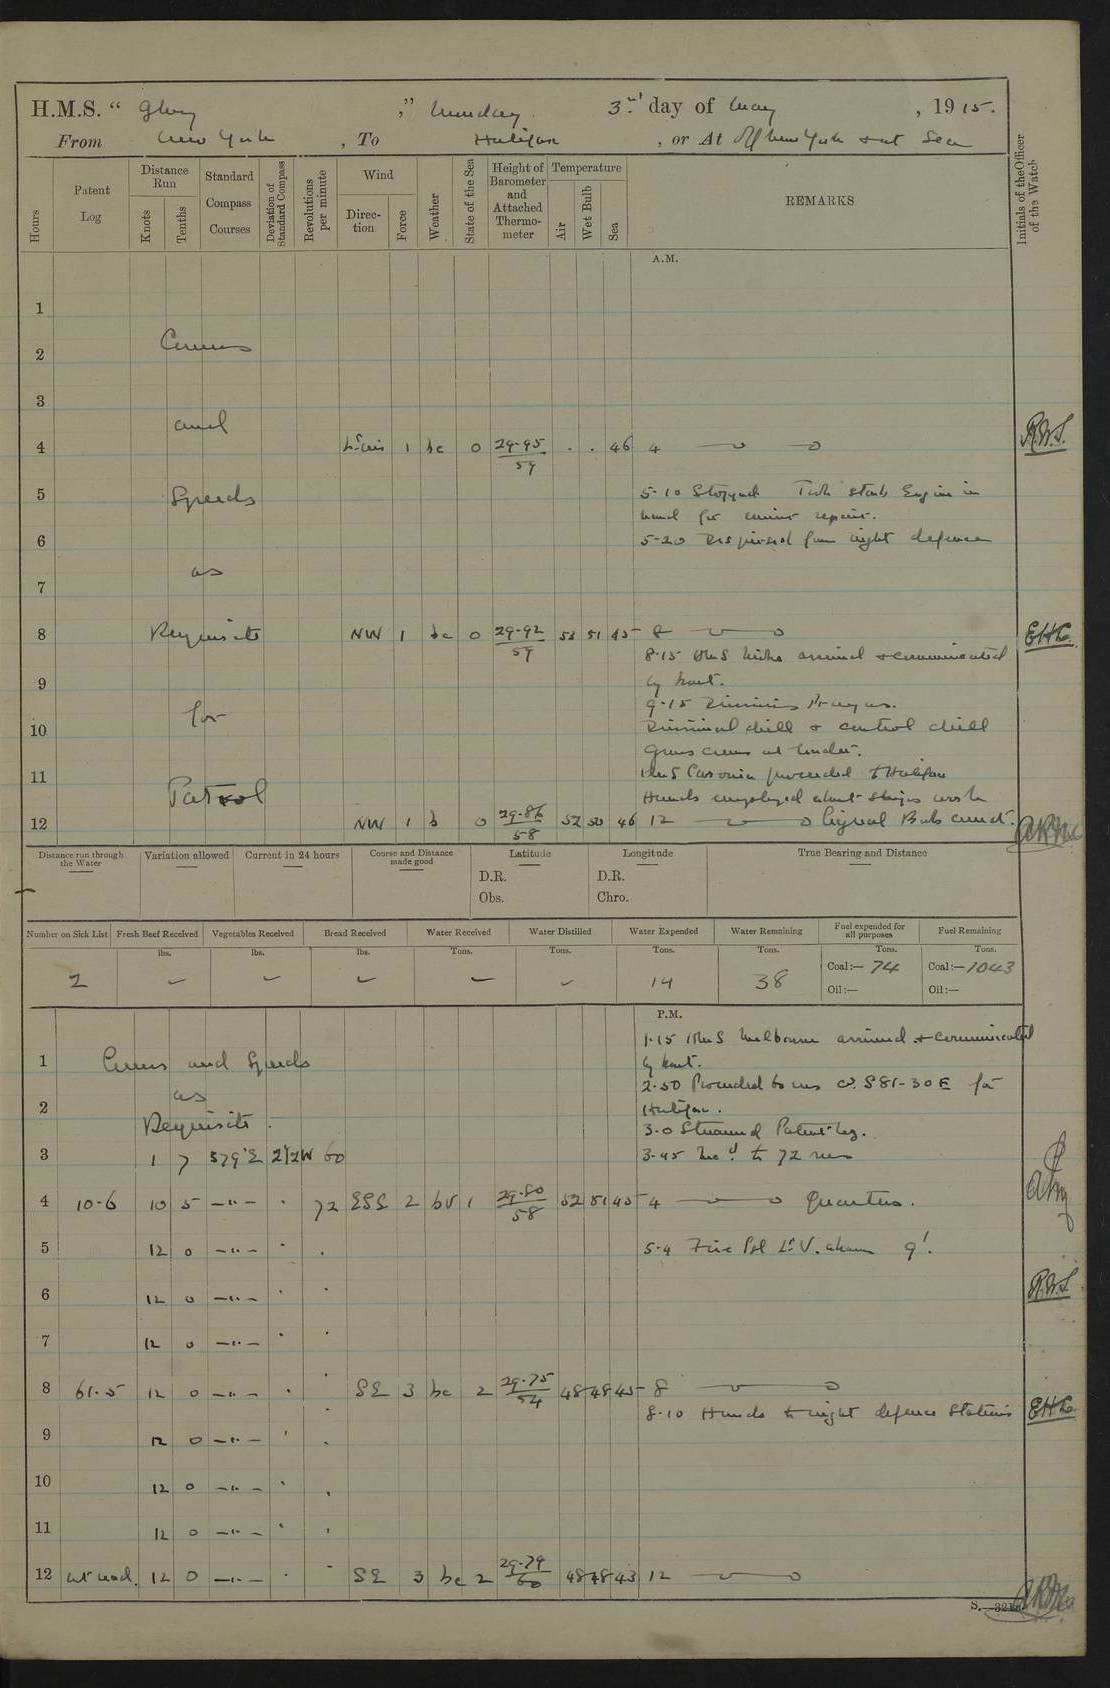 H.M.S. “ Glory ,” Monday. 3rd day of May , 1915.
From New York , To Halifax , or At Off New York & at Sea
Hours
Patent Log
Distance Run
Knots
Tenths
Standard Compass Courses
Deviation of Standard Compass
Revolutions per minute
Wind
Direction
Force
Weather
State of the Sea
Height of Barometer and Attached Thermometer
Temperature
Air
Wet Bulb
Sea
REMARKS
Initials of the Officer of the Watch
A.M.
1
2
Courses
3
and
4 Lt airs 1 bc 0 29·95 59 . . 46 4 R.W.S.
5 Speeds 5·10 Stopped Took starb Engine in
hand for minor repairs.
6 5-20 Dispersed from night defence
as
7
8 Requisite NW 1 bc 0 29·92 59 53 51 45 8 EHC.
8·15 HMS Niobe arrived & communicated
9 by boat.
9·15 Divisions Prayers.
10 for Divisional drill & control drill
Guns crews at loader.
11 HMS Caronia proceeded to Halifax
Patrol Hands employed about ships work
12 NW 1 b 0 29·86 58 52 50 46 12 Signal Boys instrct.
Distance run through the Water
Variation allowed
Current in 24 hours
Course and Distance made good
Latitude
D.R.
Obs.
Longitude
D.R.
Chro.
True Bearing and Distance
Number on Sick List
Fresh Beef Received
Vegetables Received
Bread Received
Water Received
Water Distilled
Water Expended
Water Remaining
Fuel expended for all purposes
Fuel Remaining
lbs. lbs. lbs. Tons. Tons. Tons. Tons. Tons. Tons.
2 14 38 Coal:— 74 Coal:—1043
Oil:— Oil:—
P.M.
1·15 HMS Melbourne arrived & communicated
1 Courses and Speeds by boat.
as 2·50 Proceeded 60 revs co. S81-30E for
2 Halifax.
Requisite. 3·0 Streamed Patent log.
3 1 7 S79°E 2½W 60 3·45 Incd to 72 revs
4 10·6 10 5 —"— " 72 ESE 2 bv 1 29·80 58 52 51 45 4 Quarters.
5 12 0 —"— " " 5·4 Fire Isd Lt V. abeam 9'.
6 12 0 —"— " " R.W.S.
7 12 0 —"— " "
8 61·5 12 0 —"— " SE 3 bc 2 29·75 54 48 48 45 8
8·10 Hands to night defence Stations EHC
9 12 0 —"— " "
10 12 0 —"— " "
11 12 0 —"— " "
12 12 0 —"— " " SE 3 bc 2 29·79 60 48 48 43 12
S.—321